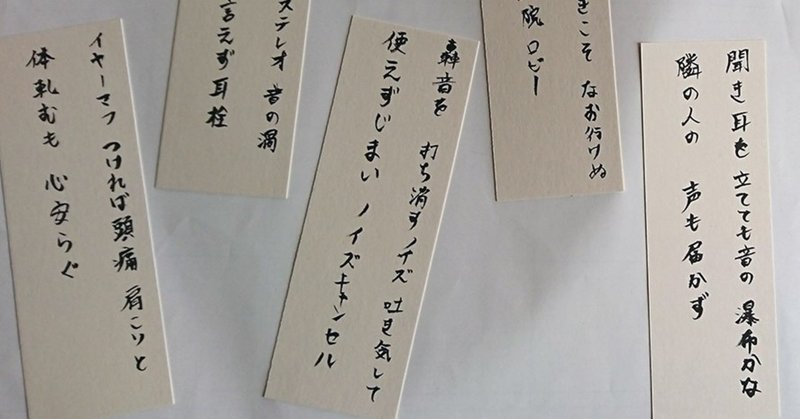 聞き耳を 立てても音の 瀑布かな
隣の人の 声も届かず
きこそ なお行けぬ
院 ロビー
轟音を 打ち消すノイズ 吐き気して
使えずじまい ノイズキャンセル
ステレオ 音の渦
言えず耳栓
イヤーマフ つければ頭痛 肩こりと
体軋むも 心安らぐ